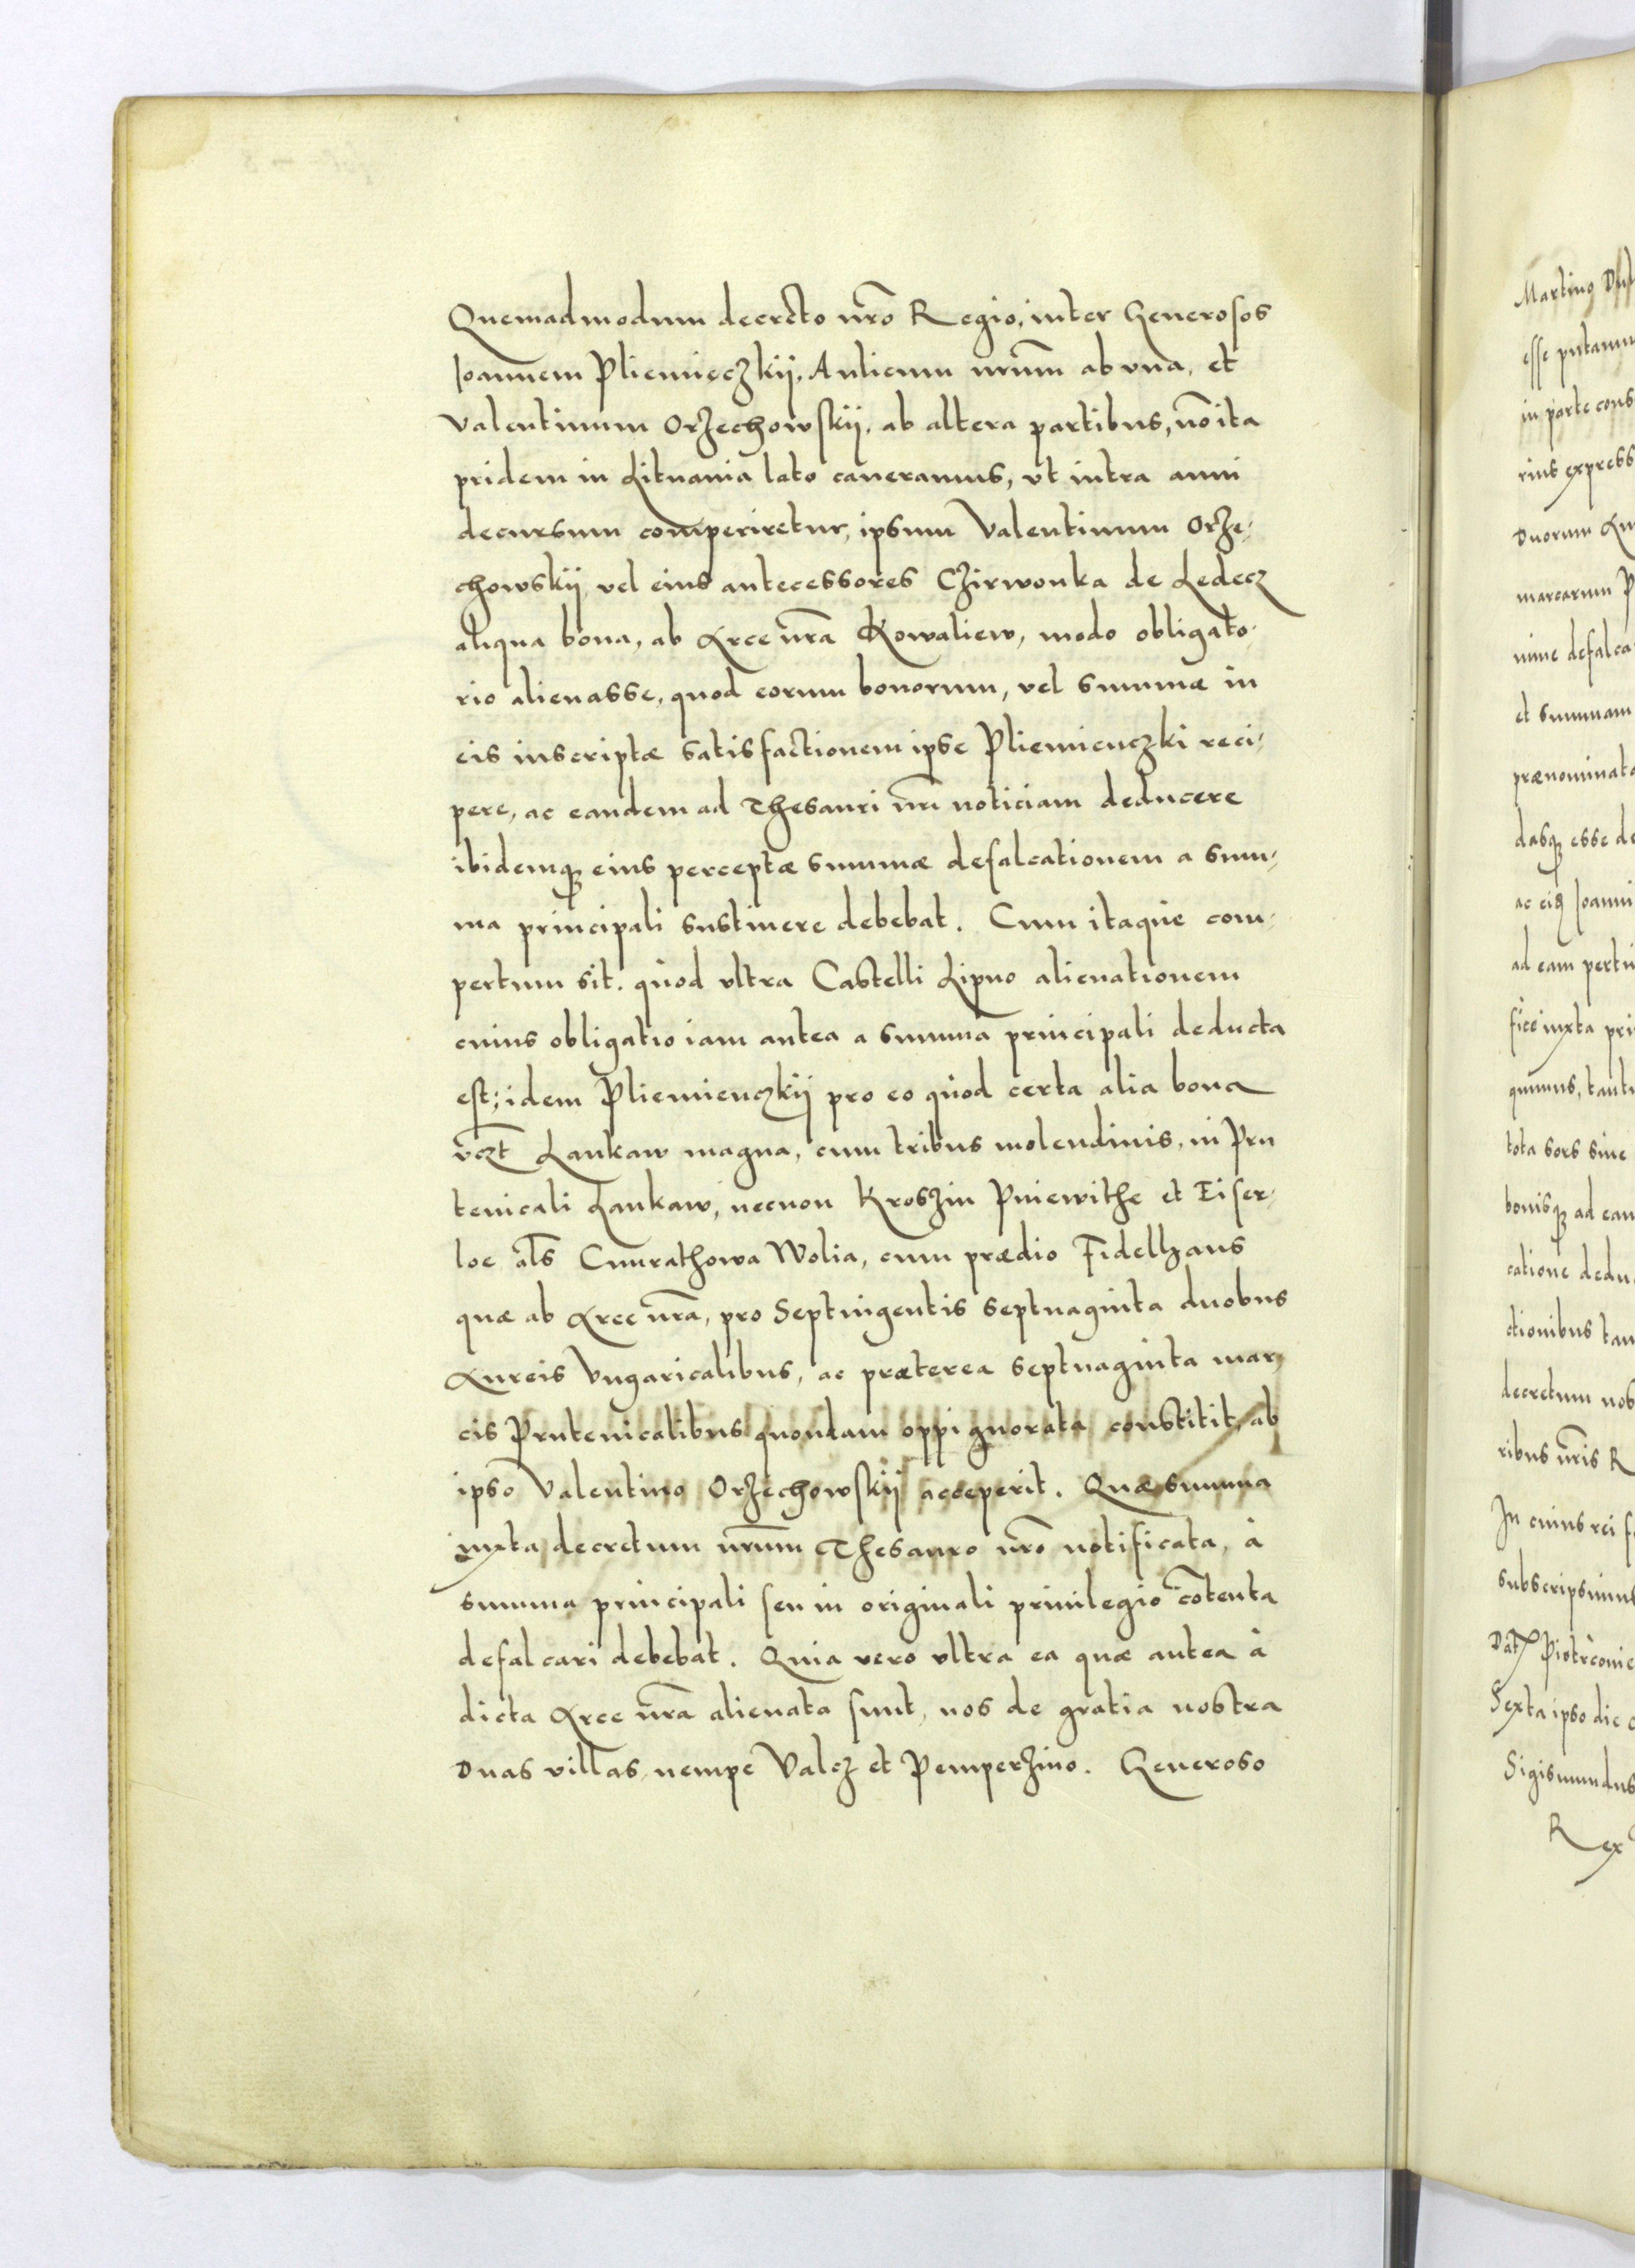 Quemadmodum decreto nr̃o Regio, inter Generosos
Ioannem Pliemięczkij, Aulicum nrũm ab vna, et
Valentinum Orzechowskij, ab altera partibus, nõ ita
pridem in Lituania lato caueramus, vt intra anni
decursum comperiretur, ipsum Valentinum Orze-
chowskij vel eius antecessores Czirwonka de Ledecz
aliqua bona, ab Arce nr̃a Kowaliew, modo obligato-
rio alienasse, quod eorum bonorum, vel summæ in
eis inscriptæ satisfactionem ipse Pliemienczki reci-
pere, ac eandem ad Thesauri nr̃i noticiam deducere
ibidemq3 eius perceptæ summæ defalcationem a sum-
ma principali sustinere debebat. Cum itaque com-
pertum sit. quod vltra Castelli Lipno alienationem
cuius obligatio iam antea a summa principali deducta
est; idem Pliemienczkij pro eo quod certa alia bona
vczt̃ Lankaw magna, cum tribus molendinis, in Pru
tenicali Lankaw, necnon Kroszin Pniewithe et Eiser-
loe al̃s Cunrathowa Wolia, cum prædio Fidelhaus
quæ ab Arce nr̃a, pro Septingentis septuaginta duobus
Aureis Vngaricalibus, ac præterea septuaginta mar-
cis Prutenicalibus quondam oppignorata constitit, ab
ipso Valentino Orzechowskij acceperit. Quæ summa
iuxta decretum nrũm Thesauro nr̃o notificata, à
summa principali seu in originali priuilegio cõtenta
defalcari debebat. Quia vero vltra ea quæ antea à
dicta Arce nr̃a alienata sunt, nos de gratia nostra
Duas villas, nempe Valcz et Pemperzino. Generoso
Martino
esse putamu
in parte cons
rius express
Duorum
marcarum P
et summam
prænominata
dasq3 esse de
ac eis Ioanni
ad eam pertin
fice iuxta pri
quimus, tant
tota sors siue
bonisq3 ad eam
catione dedu
ctionibus tam
decretum nos
ribus nr̃is R
In cuius rei f
subscripsimus
Dat̃ Piotrcouie
Sexta ipso die
Sigismundus
Rex